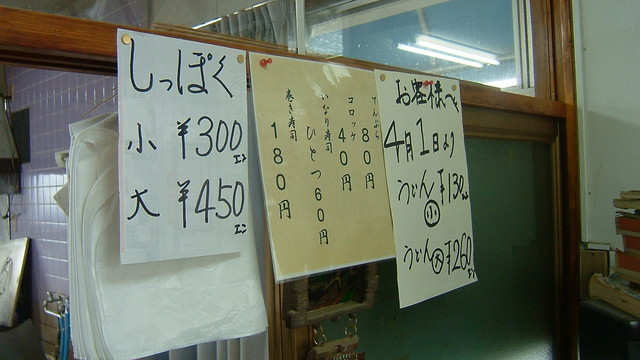 しっぽく
小 ¥300エン
大 ¥450エン
てんぷら
80円
コロッケ
40円
いなり寿司
ひとつ60円
巻き寿司
180円
お客様へ
4月1日より
うどん小¥130エン
うどん大¥260エン